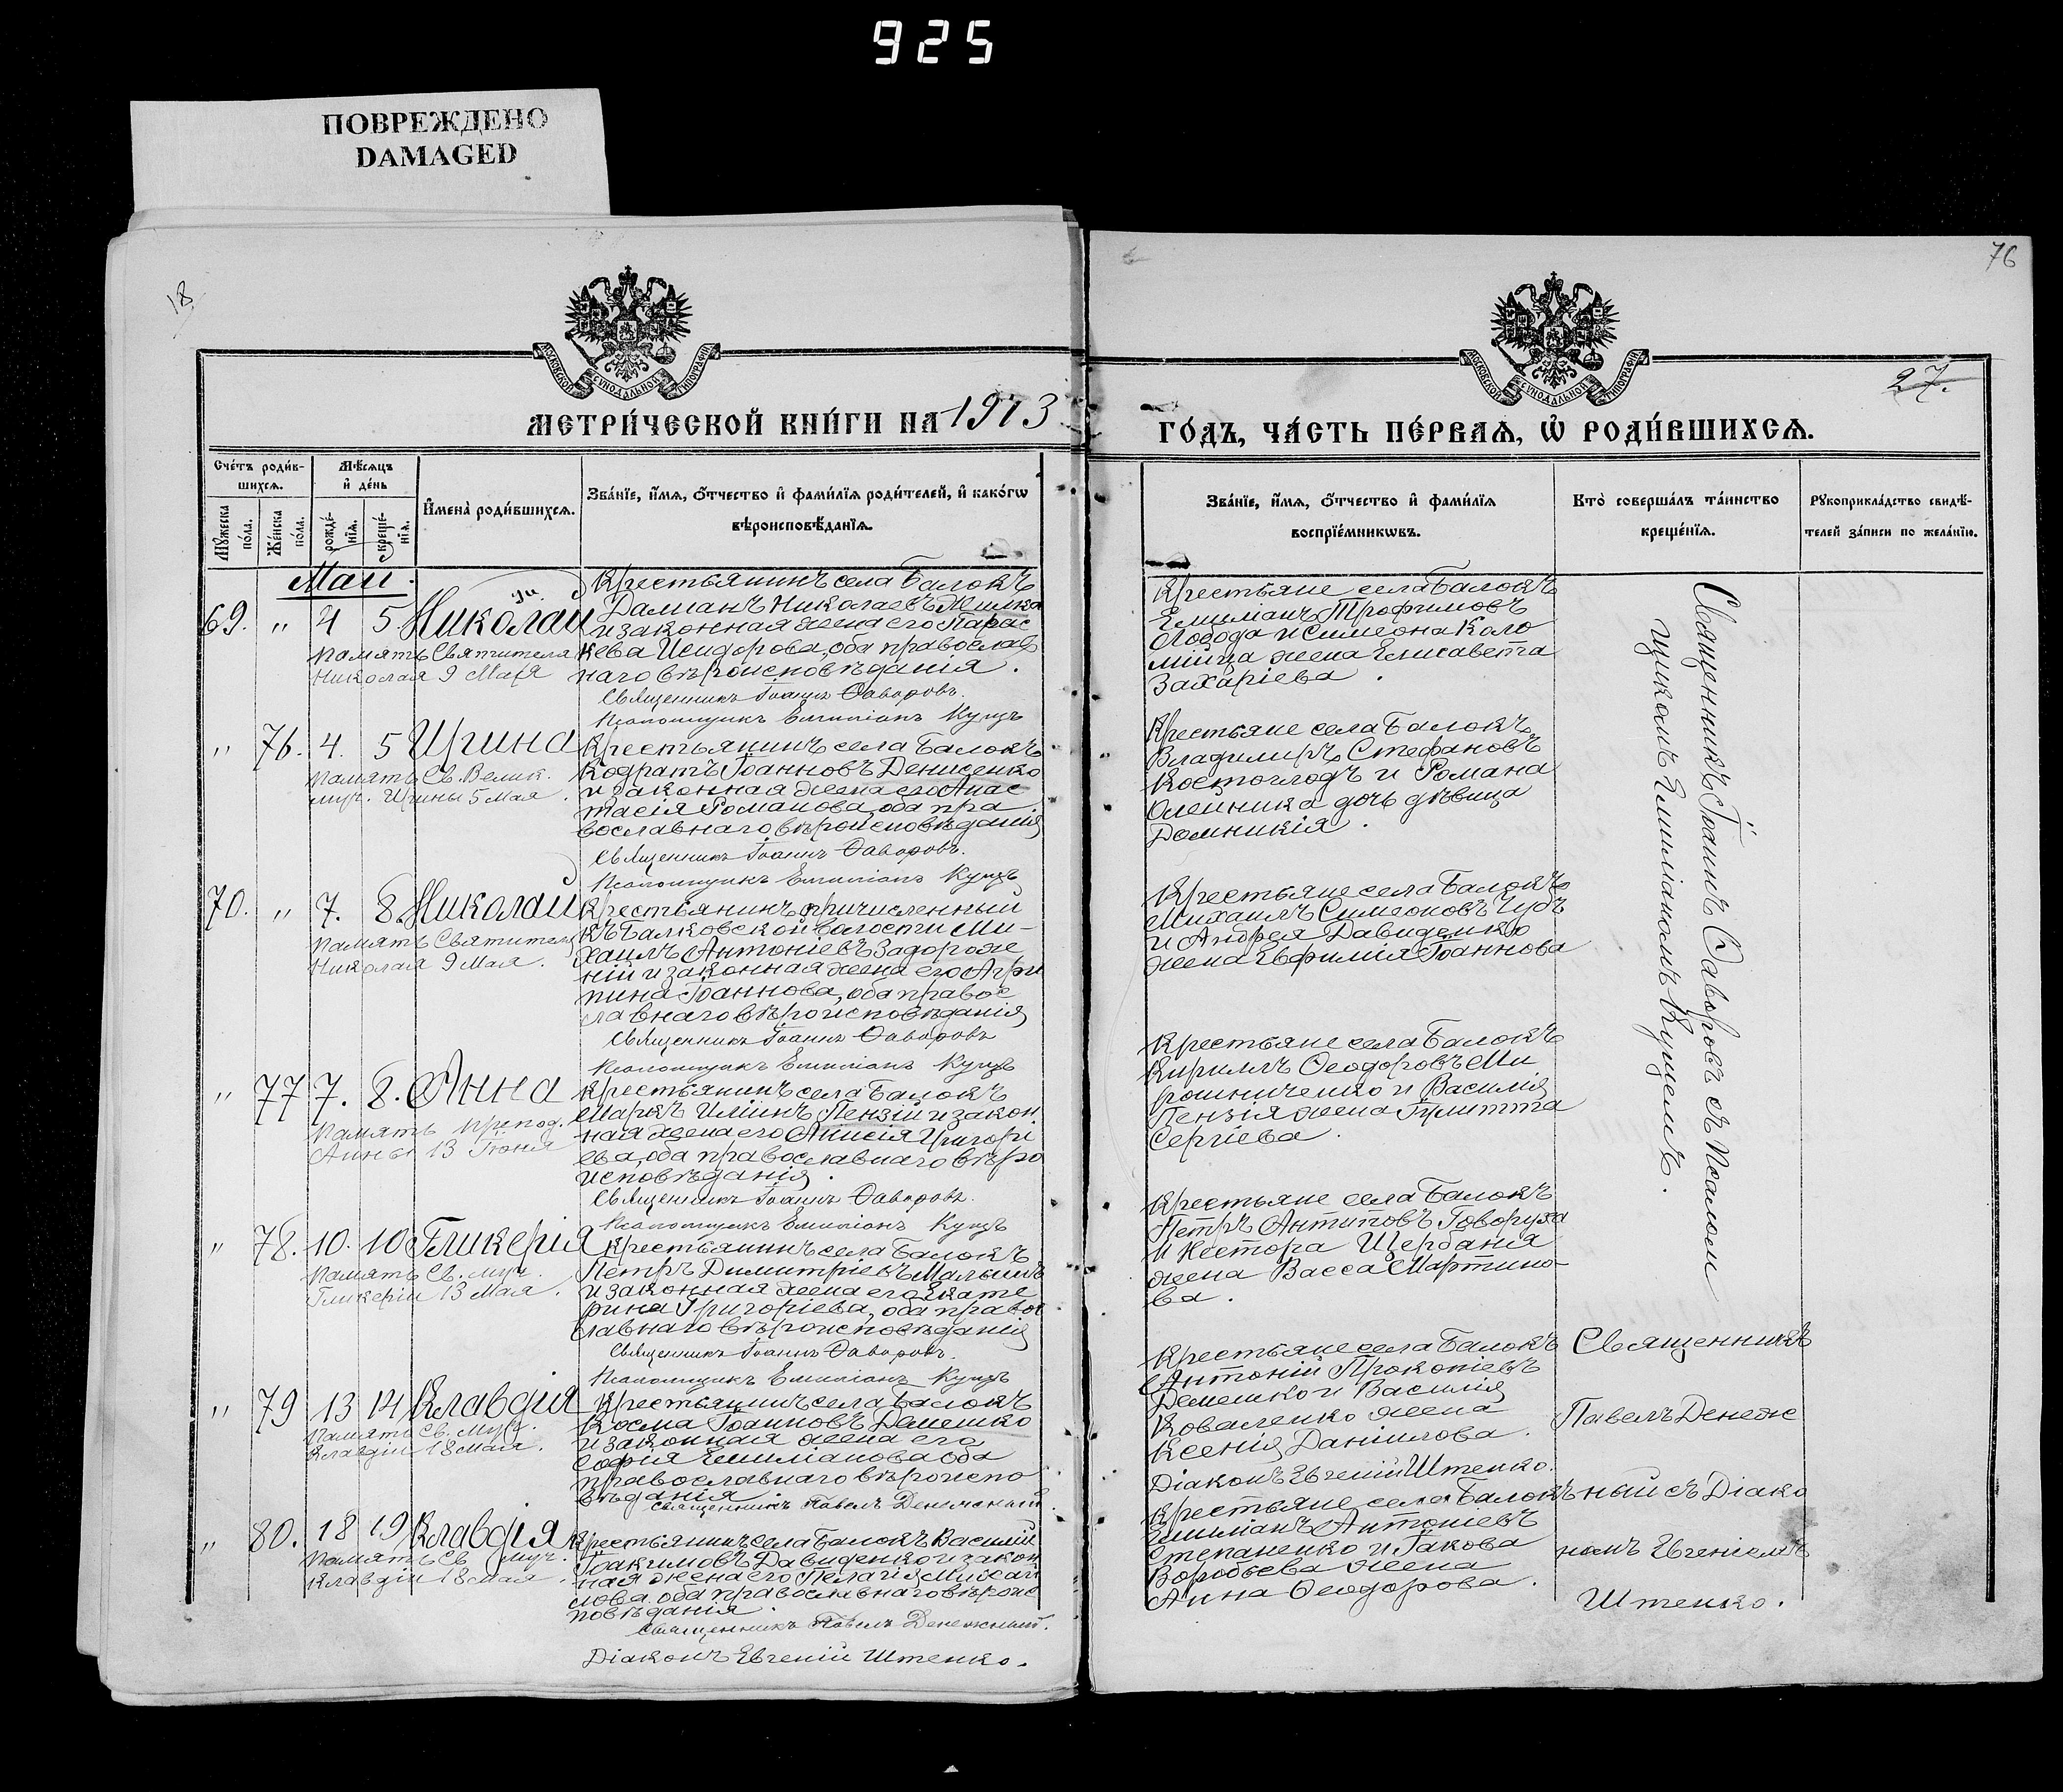 925
ПОВРЕЖДЕНО
DAMAGED
18
76
27.
МОСКОВСКОЙ СѴНОДАЛЬНОЙ ТИПОГРАФІИ
МОСКОВСКОЙ СѴНОДАЛЬНОЙ ТИПОГРАФІИ
МЕТРИ́ЧЕСКОЙ КНИ́ГИ НА 1913
ГО́ДЪ, ЧА́СТЬ ПЕ́РВАѦ, Ѽ РОДИ́ВШИХСѦ.
Сче́тъ роди́в-
шихсѧ.
Мѣ́сѧцъ
и҆ де́нь
Мꙋ́жеска
по́ла.
Же́нска
по́ла.
рожде́-
нїѧ.
креще́-
нїѧ.
И҆мена̀ роди́вшихсѧ.
Зва́нїе, и҆́мѧ, ѻ҆́тчество и҆ фами́лїѧ роди́телей, и҆ како́гѡ
вѣроисповѣ́данїѧ.
Зва́нїе, и҆́мѧ, ѻ҆́тчество и҆ фами́лїѧ
воспрїе́мникѡвъ.
Кто̀ соверша́лъ та́инство
креще́нїѧ.
Рꙋкоприкла́дство свидѣ́-
телей за́писи по жела́нїю.
Май.
69. " 4 5 Николай
Память Святителя
Николая 9 Мая
Крестьянинъ села Балокъ
Даміанъ Николаевъ
и законная жена его Парас
кева Исидорова, оба православ
наго вѣроисповѣданія.
Священникъ Іоаннъ Ѳаворовъ.
Псаломщикъ Емиліанъ Кущъ
Крестьяне села Балокъ
Емиліанъ Трофимовъ
Лобода и Симеона Коло
мійца жена Елисавета
Захаріева.
" 76. 4. 5 Ирина
Память Св. Велик.
муч. Ирины 5 Мая.
Крестьянинъ села Балокъ
Кодратъ Іоанновъ Денисенко
и законная жена его Анас
тасія Романова, оба пра
вославнаго вѣроисповѣданія
Священникъ Іоаннъ Ѳаворовъ.
Псаломщикъ Емиліанъ Кущъ
Крестьяне села Балокъ
Владимиръ Стефановъ
Костоглодъ и Романа
Олейника дочь дѣвица
Домникія.
70. " 7. 8. Николай
Память Святителя
Николая 9 Мая.
Крестьянинъ причисленный
къ Балковской волости Ми-
хаилъ Антоніевъ Задорож
ній и законная жена его Агри
пина Іоаннова, оба правос
лавнаго вѣроисповѣданія
Священникъ Іоаннъ Ѳаворовъ
Псаломщикъ Емиліанъ Кущъ
Крестьяне села Балокъ
Михаилъ Симеоновъ Чубъ
и Андрея Давиденко
жена Евфимія Іоаннова
" 77 7. 8. Анна
Память препод.
Анны 13 Іюня
Крестьянинъ села Балокъ
Маркъ Иліинъ Пензій и закон
ная жена его Анисія Григорі
ева, оба православнаго вѣро
исповѣданія.
Священникъ Іоаннъ Ѳаворовъ.
Псаломщикъ Емиліанъ Кущъ
Крестьяне села Балокъ
Кириллъ Ѳеодоровъ Ми
рошниченко и Василія
Пензія жена Іулитта
Сергіева.
" 78. 10. 10 Гликерія
Память Св. муч.
Гликеріи 13 Мая.
Крестьянинъ села Балокъ
Петръ Димитріевъ
и законная жена его Екате
рина Григоріева, оба правос
лавнаго вѣроисповѣданія
Священникъ Іоаннъ Ѳаворовъ.
Псаломщикъ Емиліанъ Кущъ
Крестьяне села Балокъ
Петръ Антиповъ Говоруха
и Нестора Щербаня
жена Васса Мартино-
ва.
Священникъ Іоаннъ Ѳаворовъ съ Псалом
щикомъ Емиліаномъ Кущемъ.
" 79 13 14 Клавдія
Память Св. муч.
Клавдіи 18 мая.
Крестьянинъ села Балокъ
Косма Іоанновъ Демешко
и законная жена его
Софія Емиліанова оба
православнаго вѣроиспо
вѣданія.
Священникъ Павелъ Денежный.
Крестьяне села Балокъ
Антоній Прокопіевъ
Демешко и Василія
Коваленко жена
Ксенія Даніилова.
Діаконъ Евгеній Штенко.
" 80. 18 19 Клавдія
Память Св. муч.
Клавдіи 18 мая.
Крестьянинъ села Балокъ Василій
Іоакимовъ Давиденко и закон
ная жена его Пелагія Михаи
лова, оба православнаго вѣроис
повѣданія.
Священникъ Павелъ Денежный.
Діаконъ Евгеній Штенко.
Крестьяне села Балокъ
Емиліанъ Антоніевъ
Степаненко и Іакова
Воробьева жена
Анна Ѳеодорова.
Священникъ
Павелъ Денеж
ный съ Діако
номъ Евгеніемъ
Штенко.